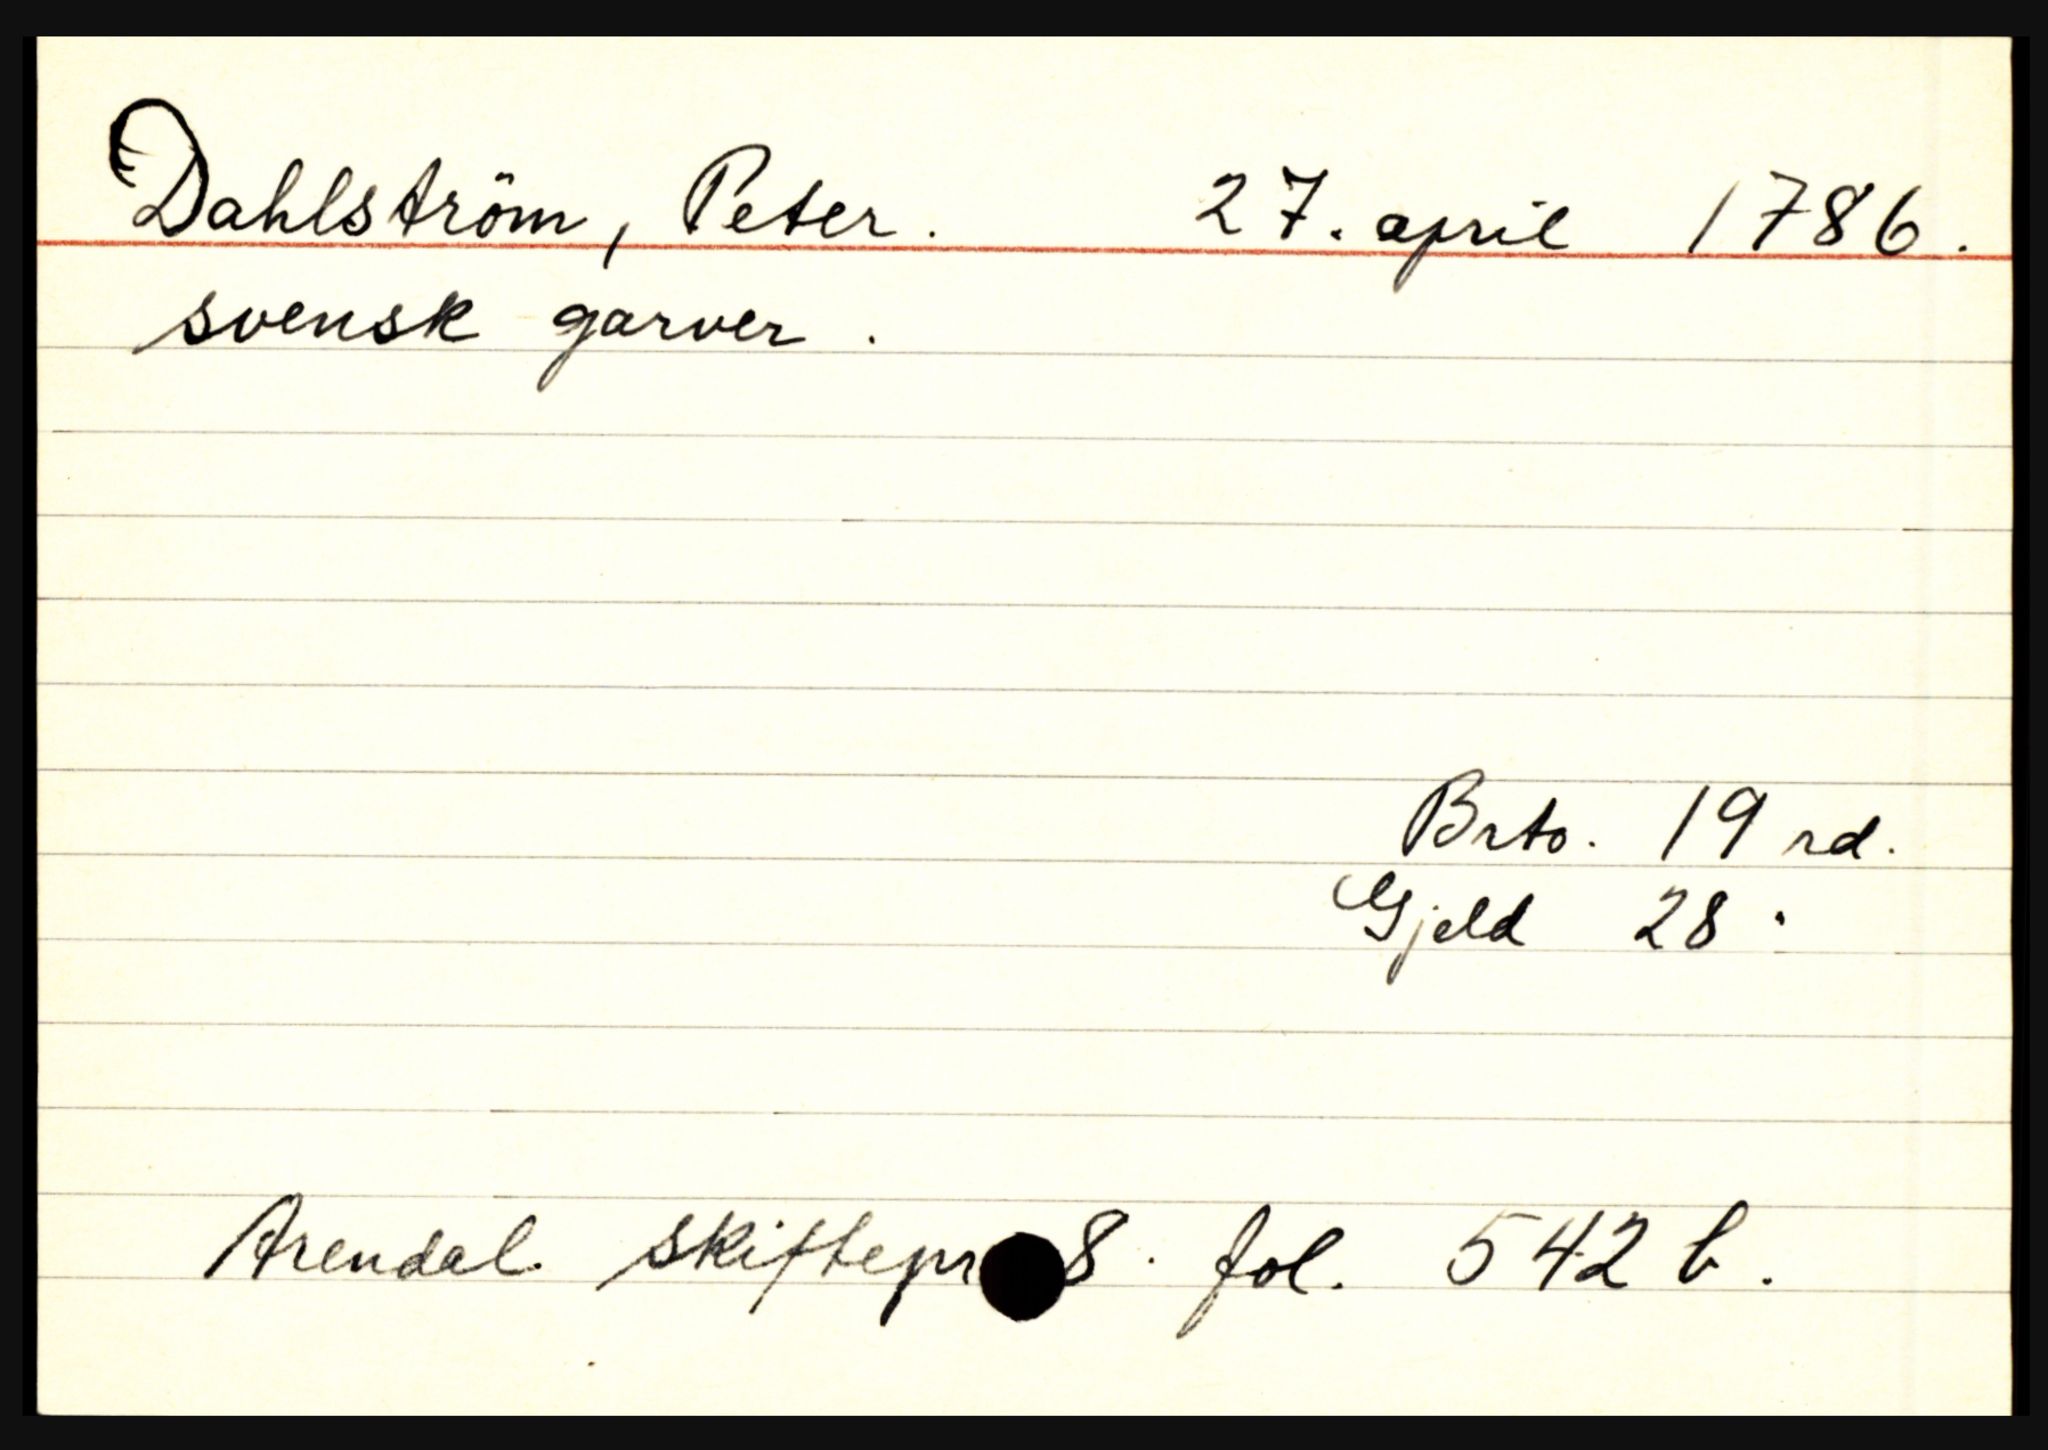 Dahlström, Peter. 27. april 1786.
svensk garver.
Brto. 19 rd.
Gjeld 28 "
Arendal skiftepr 8. fol. 542 b.